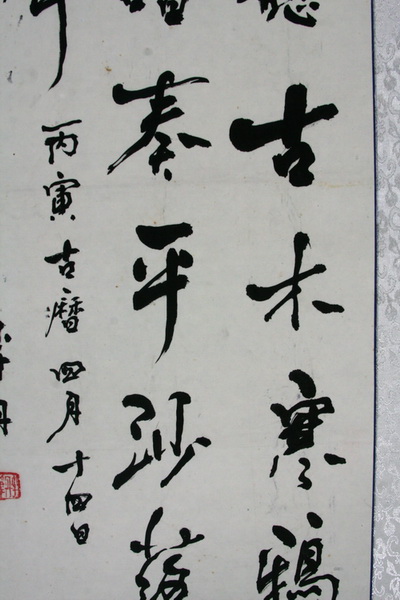 古木寒鴉
奏平沙落
丙寅古曆四月十四日